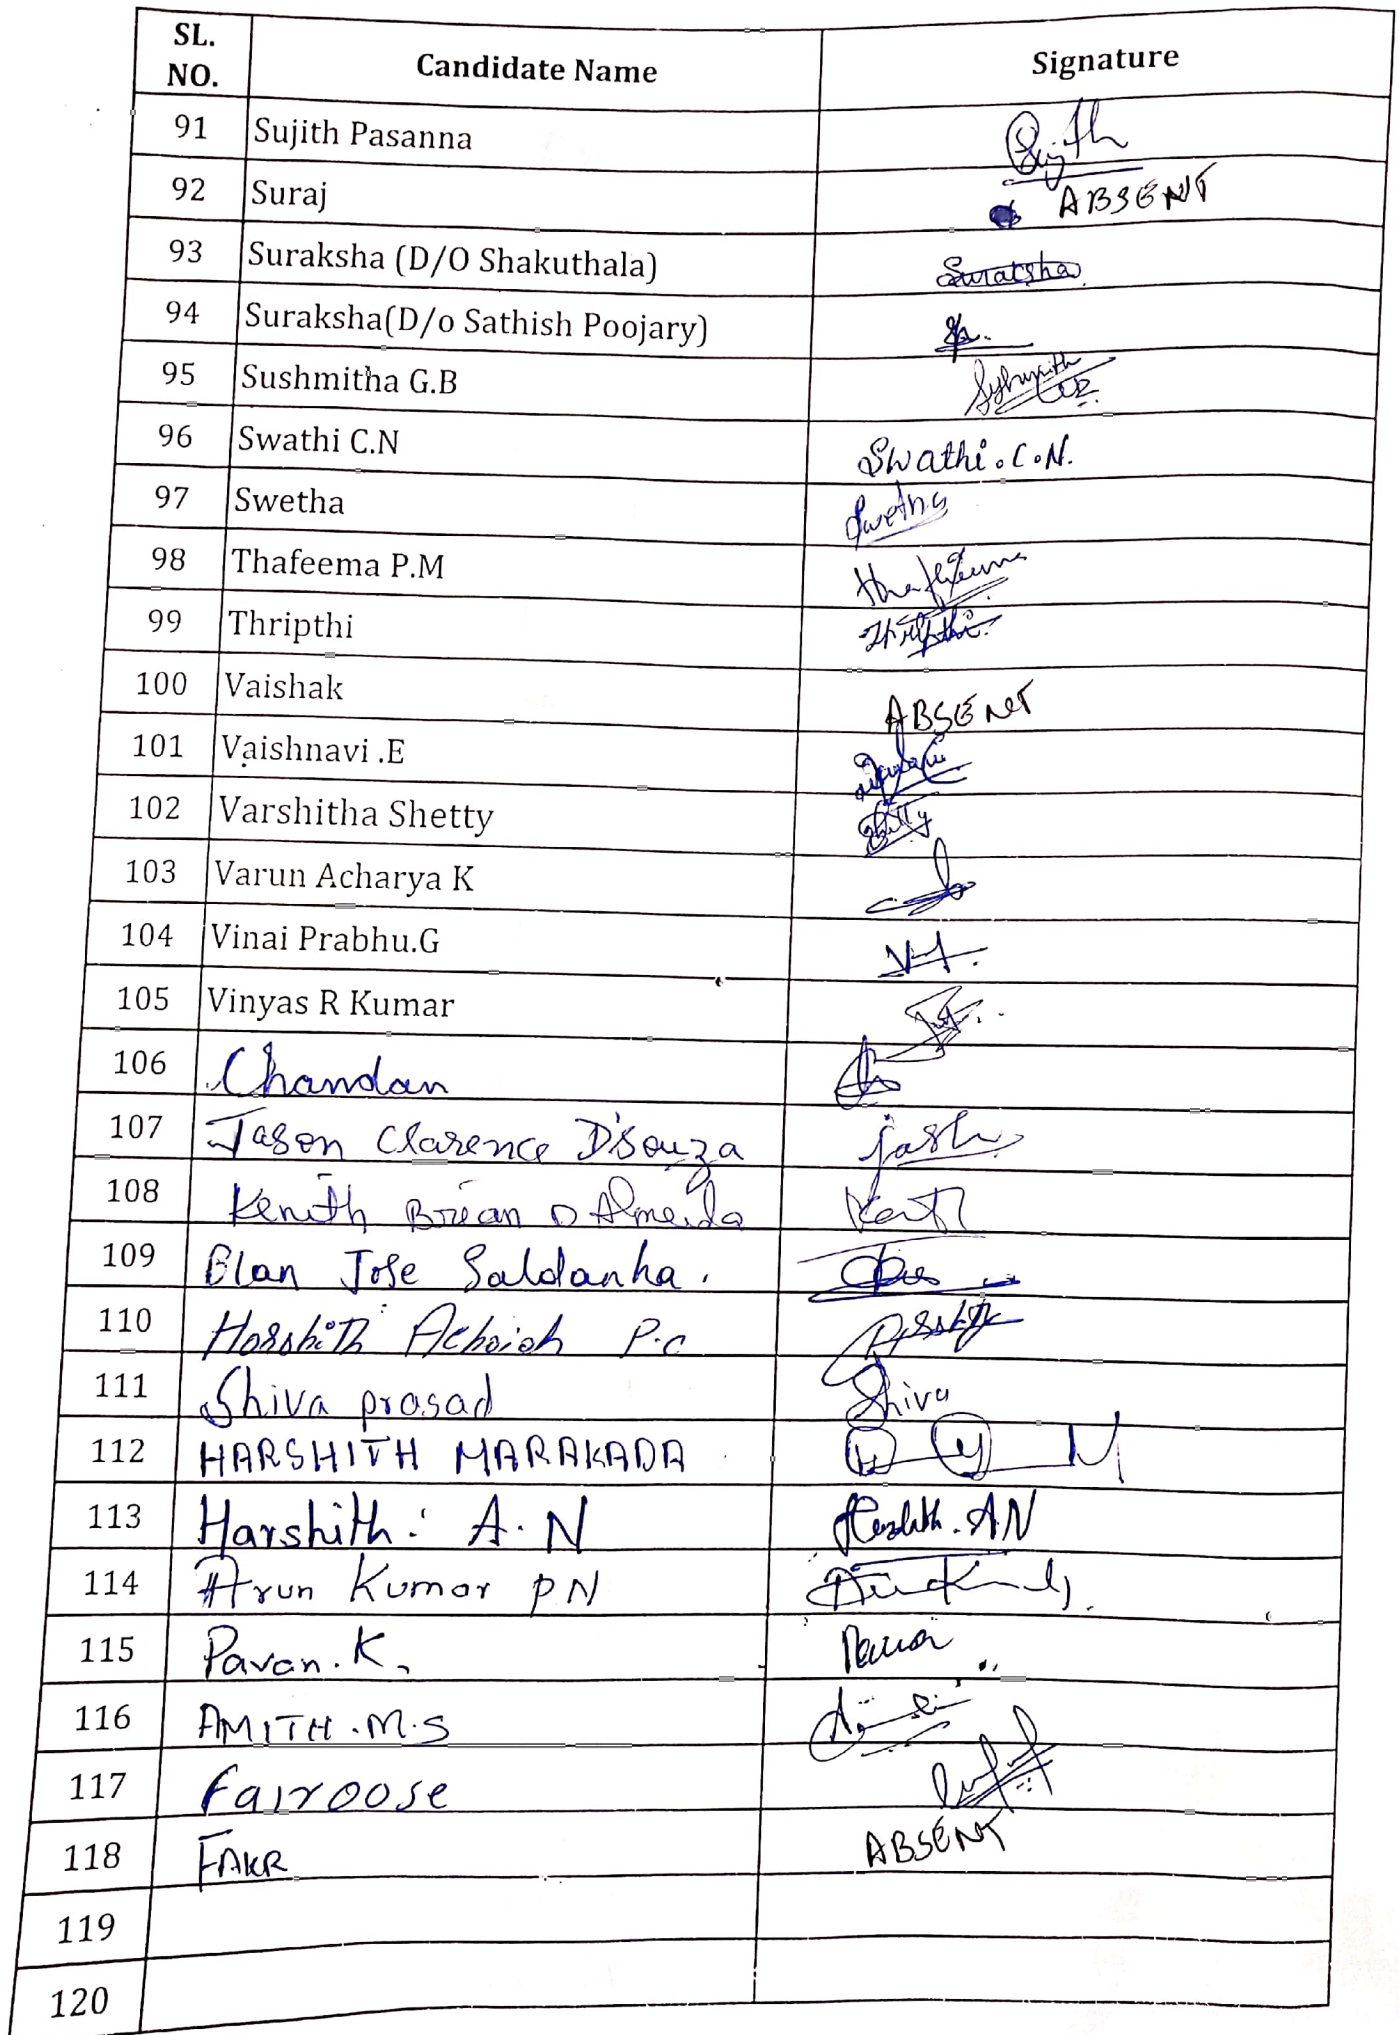 SL. NO. Candidate Name Signature
91 Sujith Pasanna Sujith
92 Suraj ABSENT
93 Suraksha (D/O Shakuthala) Suraksha
94 Suraksha(D/o Sathish Poojary)
95 Sushmitha G.B
96 Swathi C.N Swathi.C.N.
97 Swetha Swetha
98 Thafeema P.M Thafeema
99 Thripthi Thripthi
100 Vaishak ABSENT
101 Vaishnavi .E
102 Varshitha Shetty Shetty
103 Varun Acharya K
104 Vinai Prabhu.G
105 Vinyas R Kumar
106 Chandan
107 Jason Clarence D'Souza
108 Kenith Brian D Almeida
109 Olan Jose Saldanha.
110 Harshith P.C
111 Shiva prasad Shiva
112 HARSHITH MARAKADA
113 Harshith. A.N Harshith. A N
114 Arun Kumar P N
115 Pavan.K. Pavan
116 AMITH.M.S
117 Fairoose
118 FAKR ABSENT
119
120